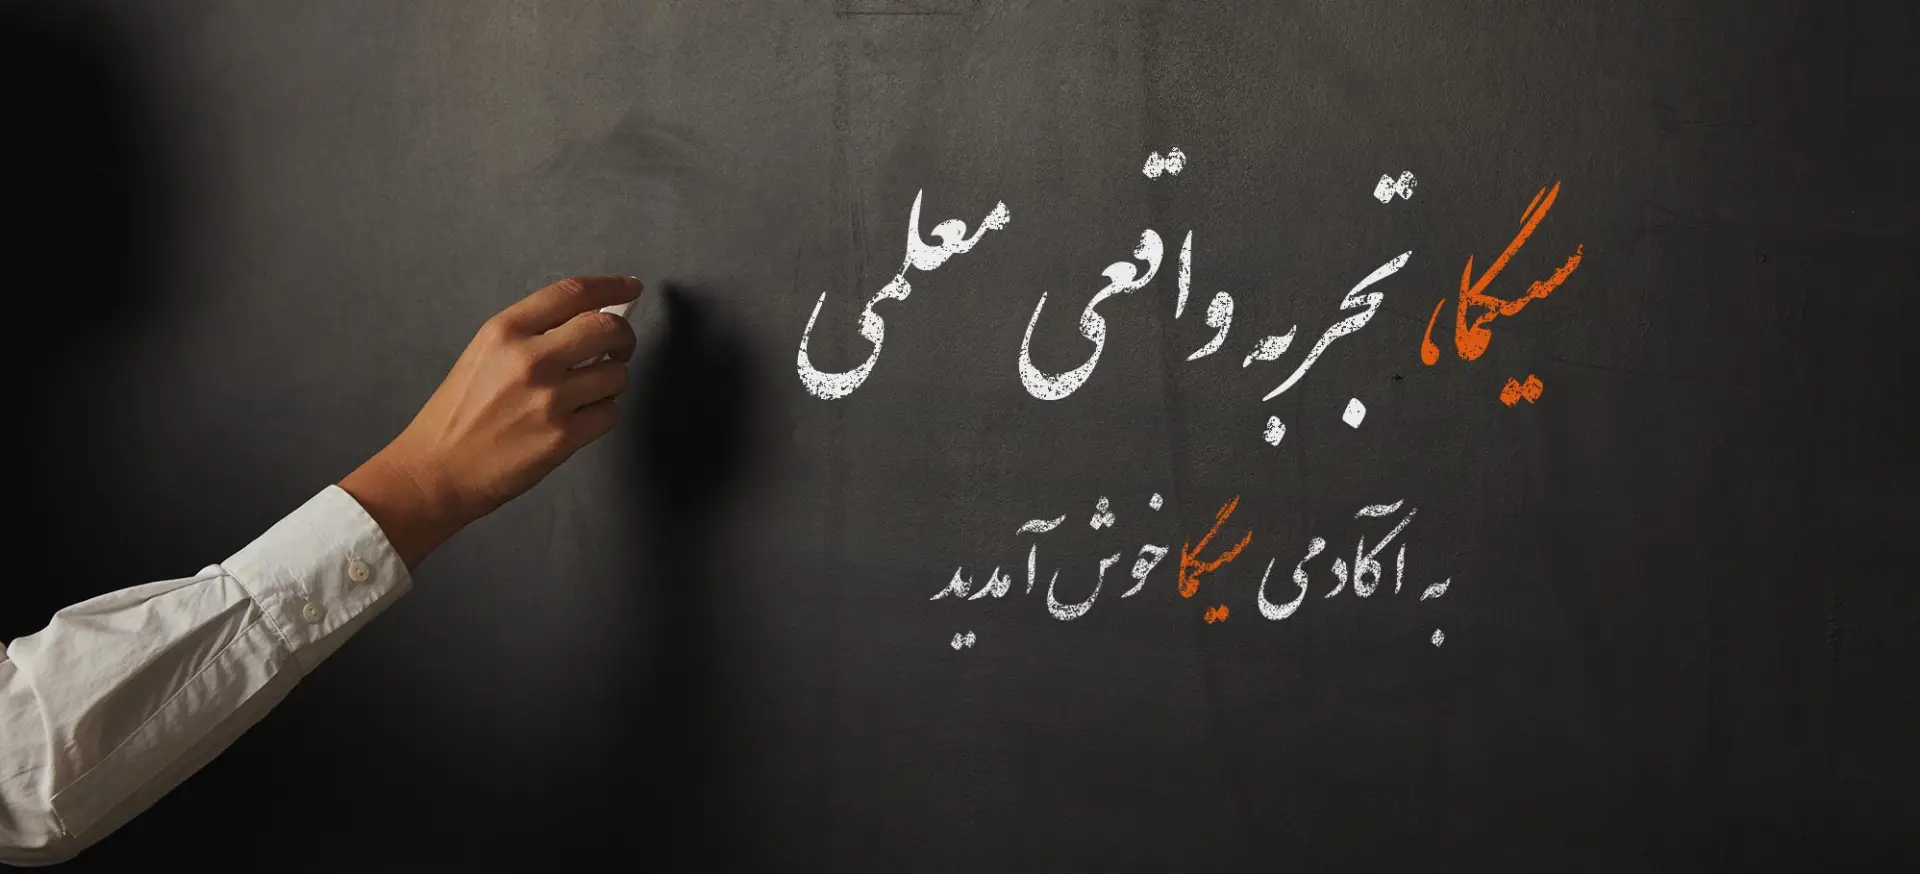 سیگما، تجربه واقعی معلمی
به آکادمی سیگما خوش آمدید